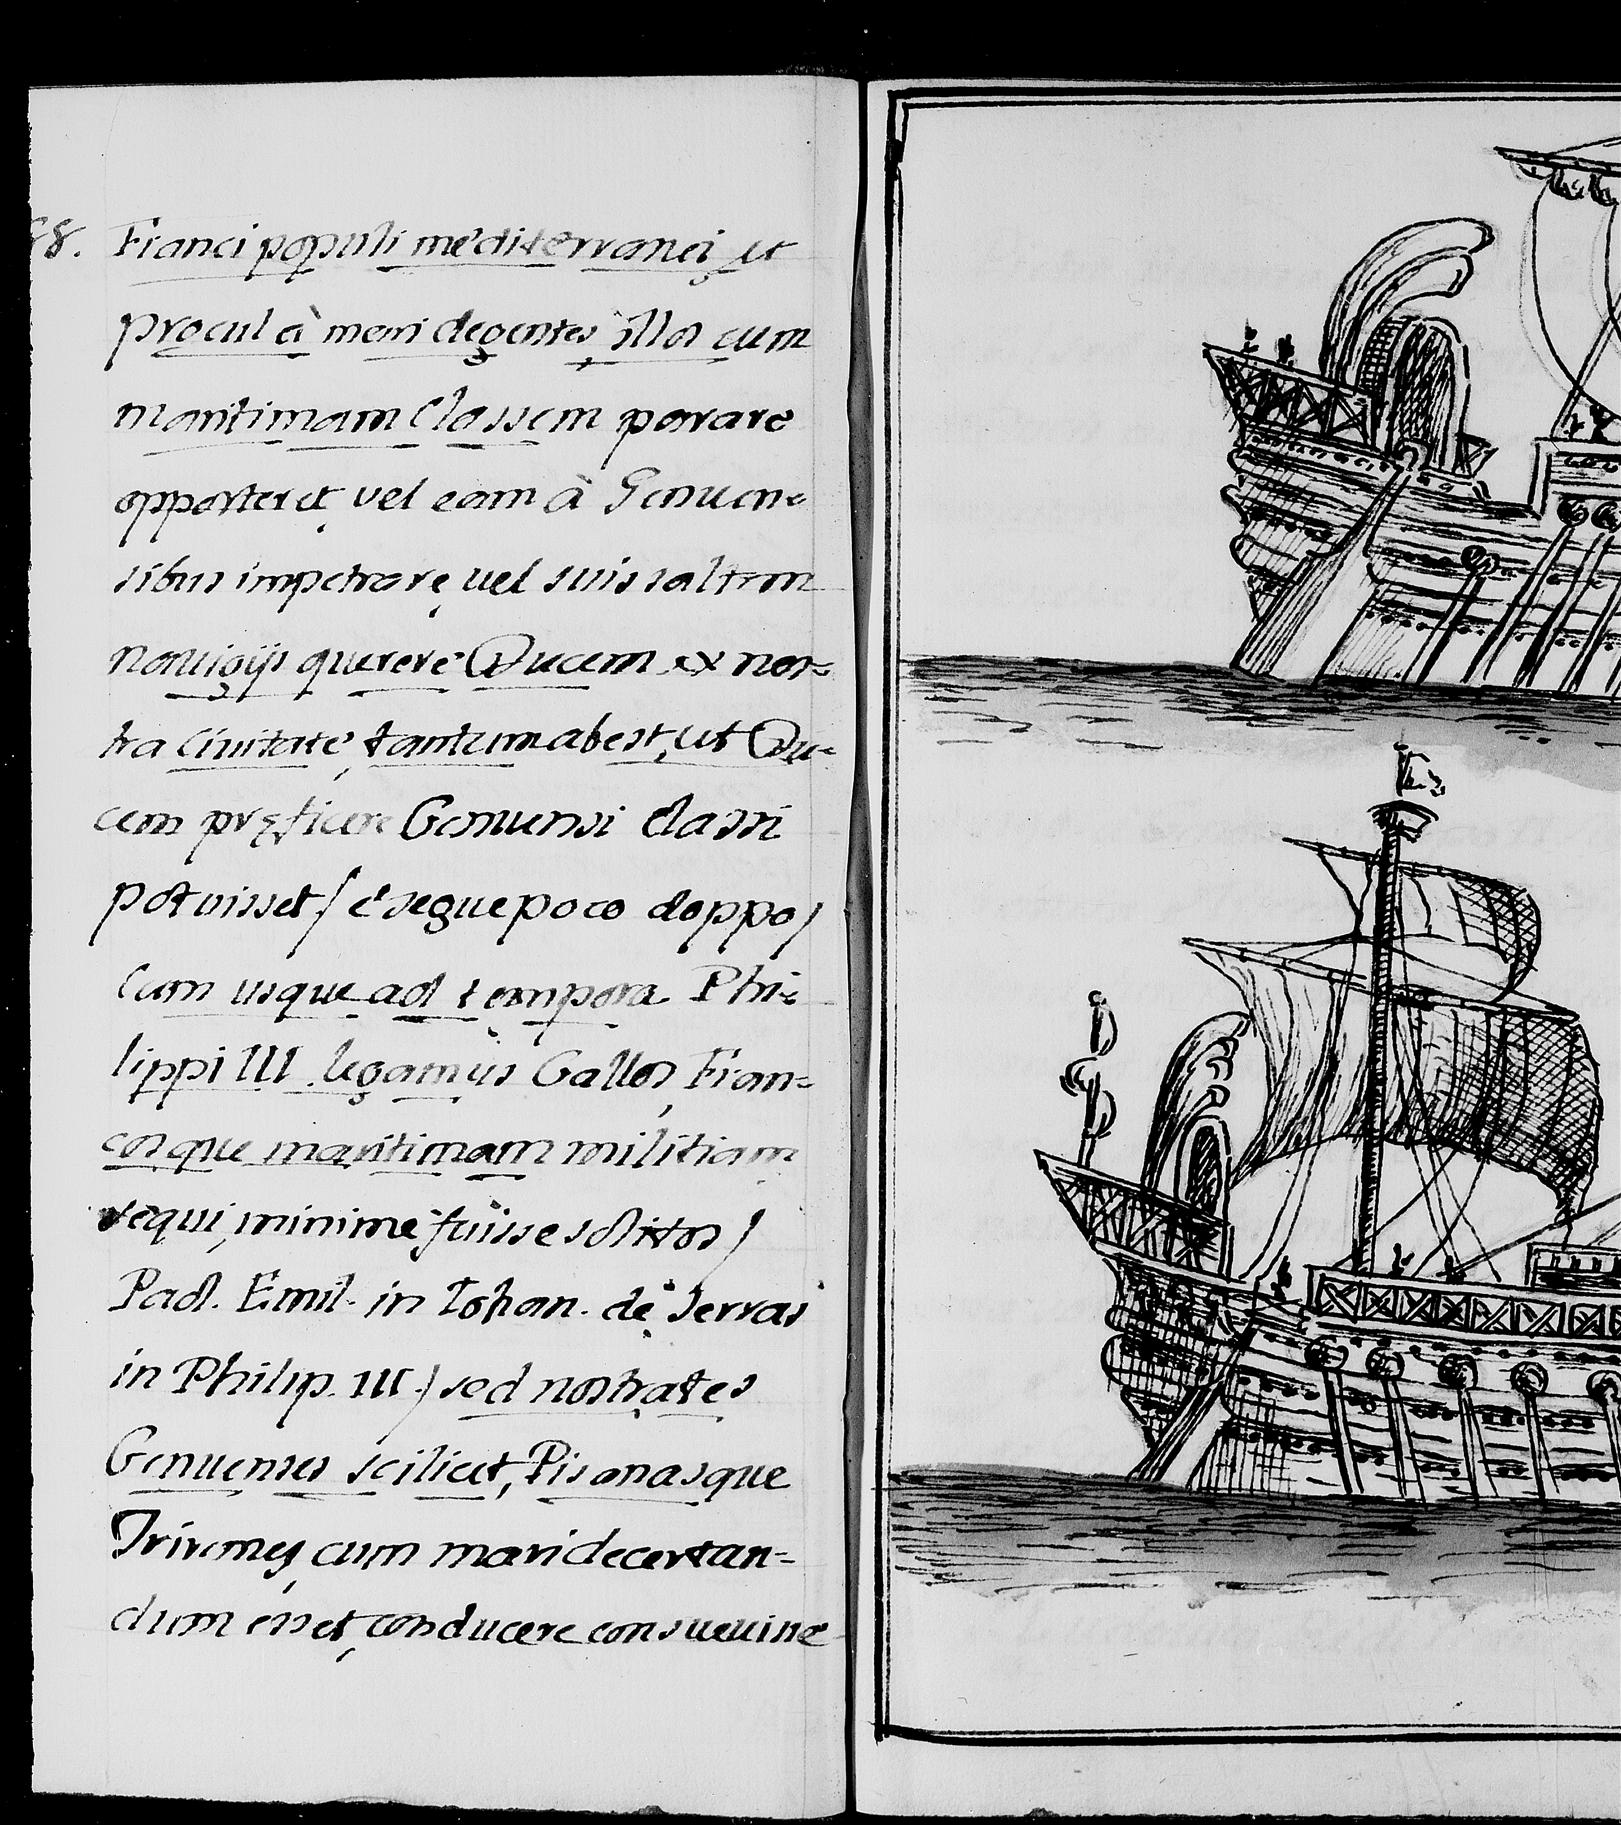 68. Franci populi mediterranei, ut
procul à mari degentes, illos cum
maritimam Classem parare
opporteret, vel eam à Genuen=
sibus impetrare, uel suis saltem
nauigijs querere Ducem ex nos=
tra Ciuitate, tantum abest, ut Du=
cem pręficere Genuensi Classi
potuisset / è segue poco doppo /
Cum usque ad tempora Phi=
lippi III legamus Gallos, Fran=
cosque maritimam militiam
sequi, minimè fuisse solitos /
Paol. Emil. in Iohan. de Serras
in Philip. III.) sed nostrates
Genuenses scilicet, Pisanasque
Triremes, cum mari decertan=
dum esset, conducere consueuisse